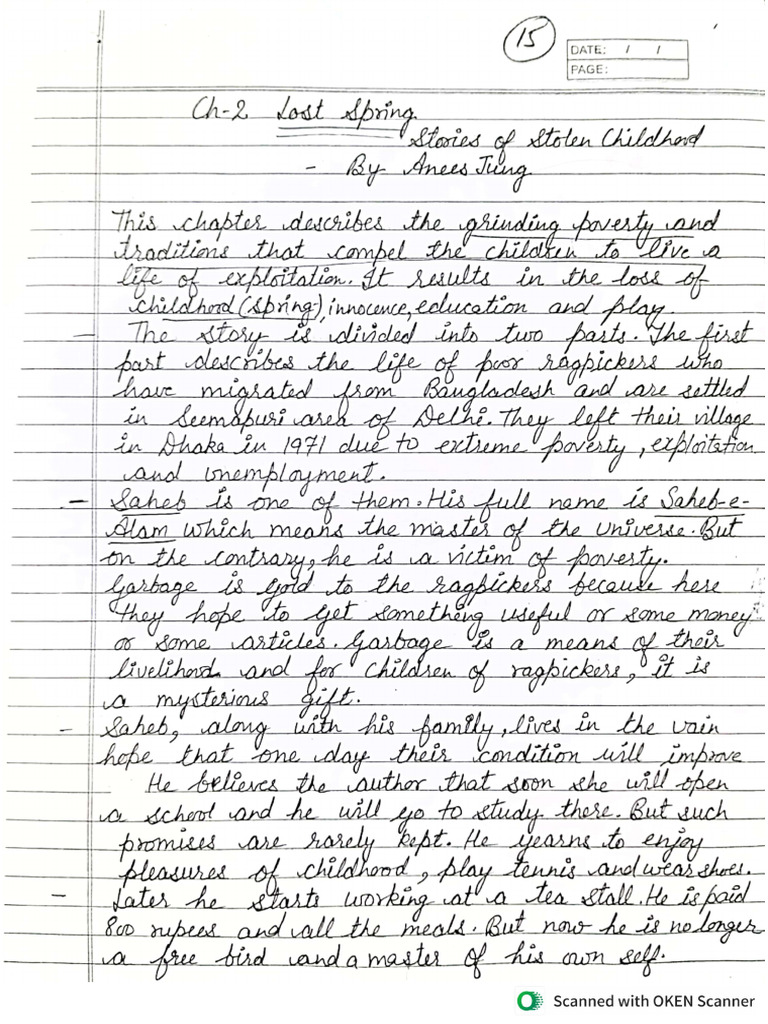 15
DATE: / /
PAGE:
Ch-2 Lost Spring
Stories of Stolen Childhood
- By Anees Jung
This chapter describes the grinding poverty and
traditions that compel the children to live a
life of exploitation. It results in the loss of
childhood (spring), innocence, education and play.
- The story is divided into two parts. The first
part describes the life of poor ragpickers who
have migrated from Bangladesh and are settled
in Seemapuri area of Delhi. They left their village
in Dhaka in 1971 due to extreme poverty, exploitation
and unemployment.
- Saheb is one of them. His full name is Saheb-e-
Alam which means the master of the universe. But
on the contrary, he is a victim of poverty.
Garbage is gold to the ragpickers because here
they hope to get something useful or some money
or some articles. Garbage is a means of their
livelihood and for children of ragpickers, it is
a mysterious gift.
- Saheb, along with his family, lives in the vain
hope that one day their condition will improve
He believes the author that soon she will open
a school and he will go to study there. But such
promises are rarely kept. He yearns to enjoy
pleasures of childhood, play tennis and wear shoes.
- Later he starts working at a tea stall. He is paid
800 rupees and all the meals. But now he is no longer
a free bird and a master of his own self.
Scanned with OKEN Scanner